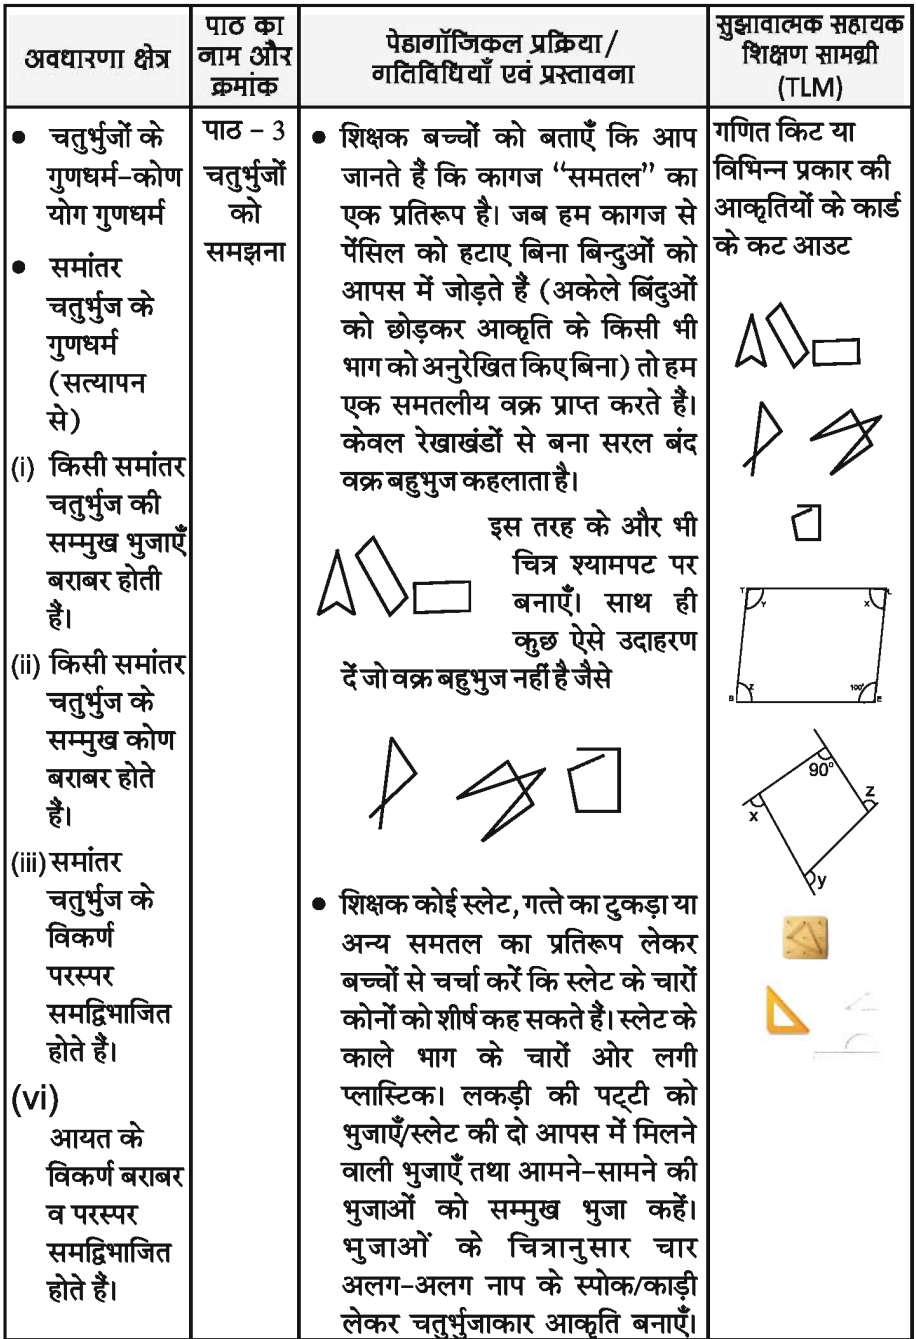 अवधारणा क्षेत्र
पाठ का
नाम और
क्रमांक
पेडागॉजिकल प्रक्रिया/
गतिविधियाँ एवं प्रस्तावना
सुझावात्मक सहायक
शिक्षण सामग्री
(TLM)
• चतुर्भुजों के
गुणधर्म-कोण
योग गुणधर्म
• समांतर
चतुर्भुज के
गुणधर्म
(सत्यापन
से)
(i) किसी समांतर
चतुर्भुज की
सम्मुख भुजाएँ
बराबर होती
हैं।
(ii) किसी समांतर
चतुर्भुज के
सम्मुख कोण
बराबर होते
हैं।
(iii) समांतर
चतुर्भुज के
विकर्ण
परस्पर
समद्विभाजित
होते हैं।
(vi)
आयत के
विकर्ण बराबर
व परस्पर
समद्विभाजित
होते हैं।
पाठ - 3
चतुर्भुजों
को
समझना
• शिक्षक बच्चों को बताएँ कि आप
जानते हैं कि कागज “समतल” का
एक प्रतिरूप है। जब हम कागज से
पेंसिल को हटाए बिना बिन्दुओं को
आपस में जोड़ते हैं (अकेले बिंदुओं
को छोड़कर आकृति के किसी भी
भाग को अनुरेखित किए बिना) तो हम
एक समतलीय वक्र प्राप्त करते हैं।
केवल रेखाखंडों से बना सरल बंद
वक्र बहुभुज कहलाता है।
इस तरह के और भी
चित्र श्यामपट पर
बनाएँ। साथ ही
कुछ ऐसे उदाहरण
दें जो वक्र बहुभुज नहीं है जैसे
• शिक्षक कोई स्लेट, गत्ते का टुकड़ा या
अन्य समतल का प्रतिरूप लेकर
बच्चों से चर्चा करें कि स्लेट के चारों
कोनों को शीर्ष कह सकते हैं। स्लेट के
काले भाग के चारों ओर लगी
प्लास्टिक। लकड़ी की पट्टी को
भुजाएँ/स्लेट की दो आपस में मिलने
वाली भुजाएँ तथा आमने-सामने की
भुजाओं को सम्मुख भुजा कहें।
भुजाओं के चित्रानुसार चार
अलग-अलग नाप के स्पोक/काड़ी
लेकर चतुर्भुजाकार आकृति बनाएँ।
गणित किट या
विभिन्न प्रकार की
आकृतियों के कार्ड
के कट आउट
T
Y
X
L
Z
100°
E
90°
x
z
y